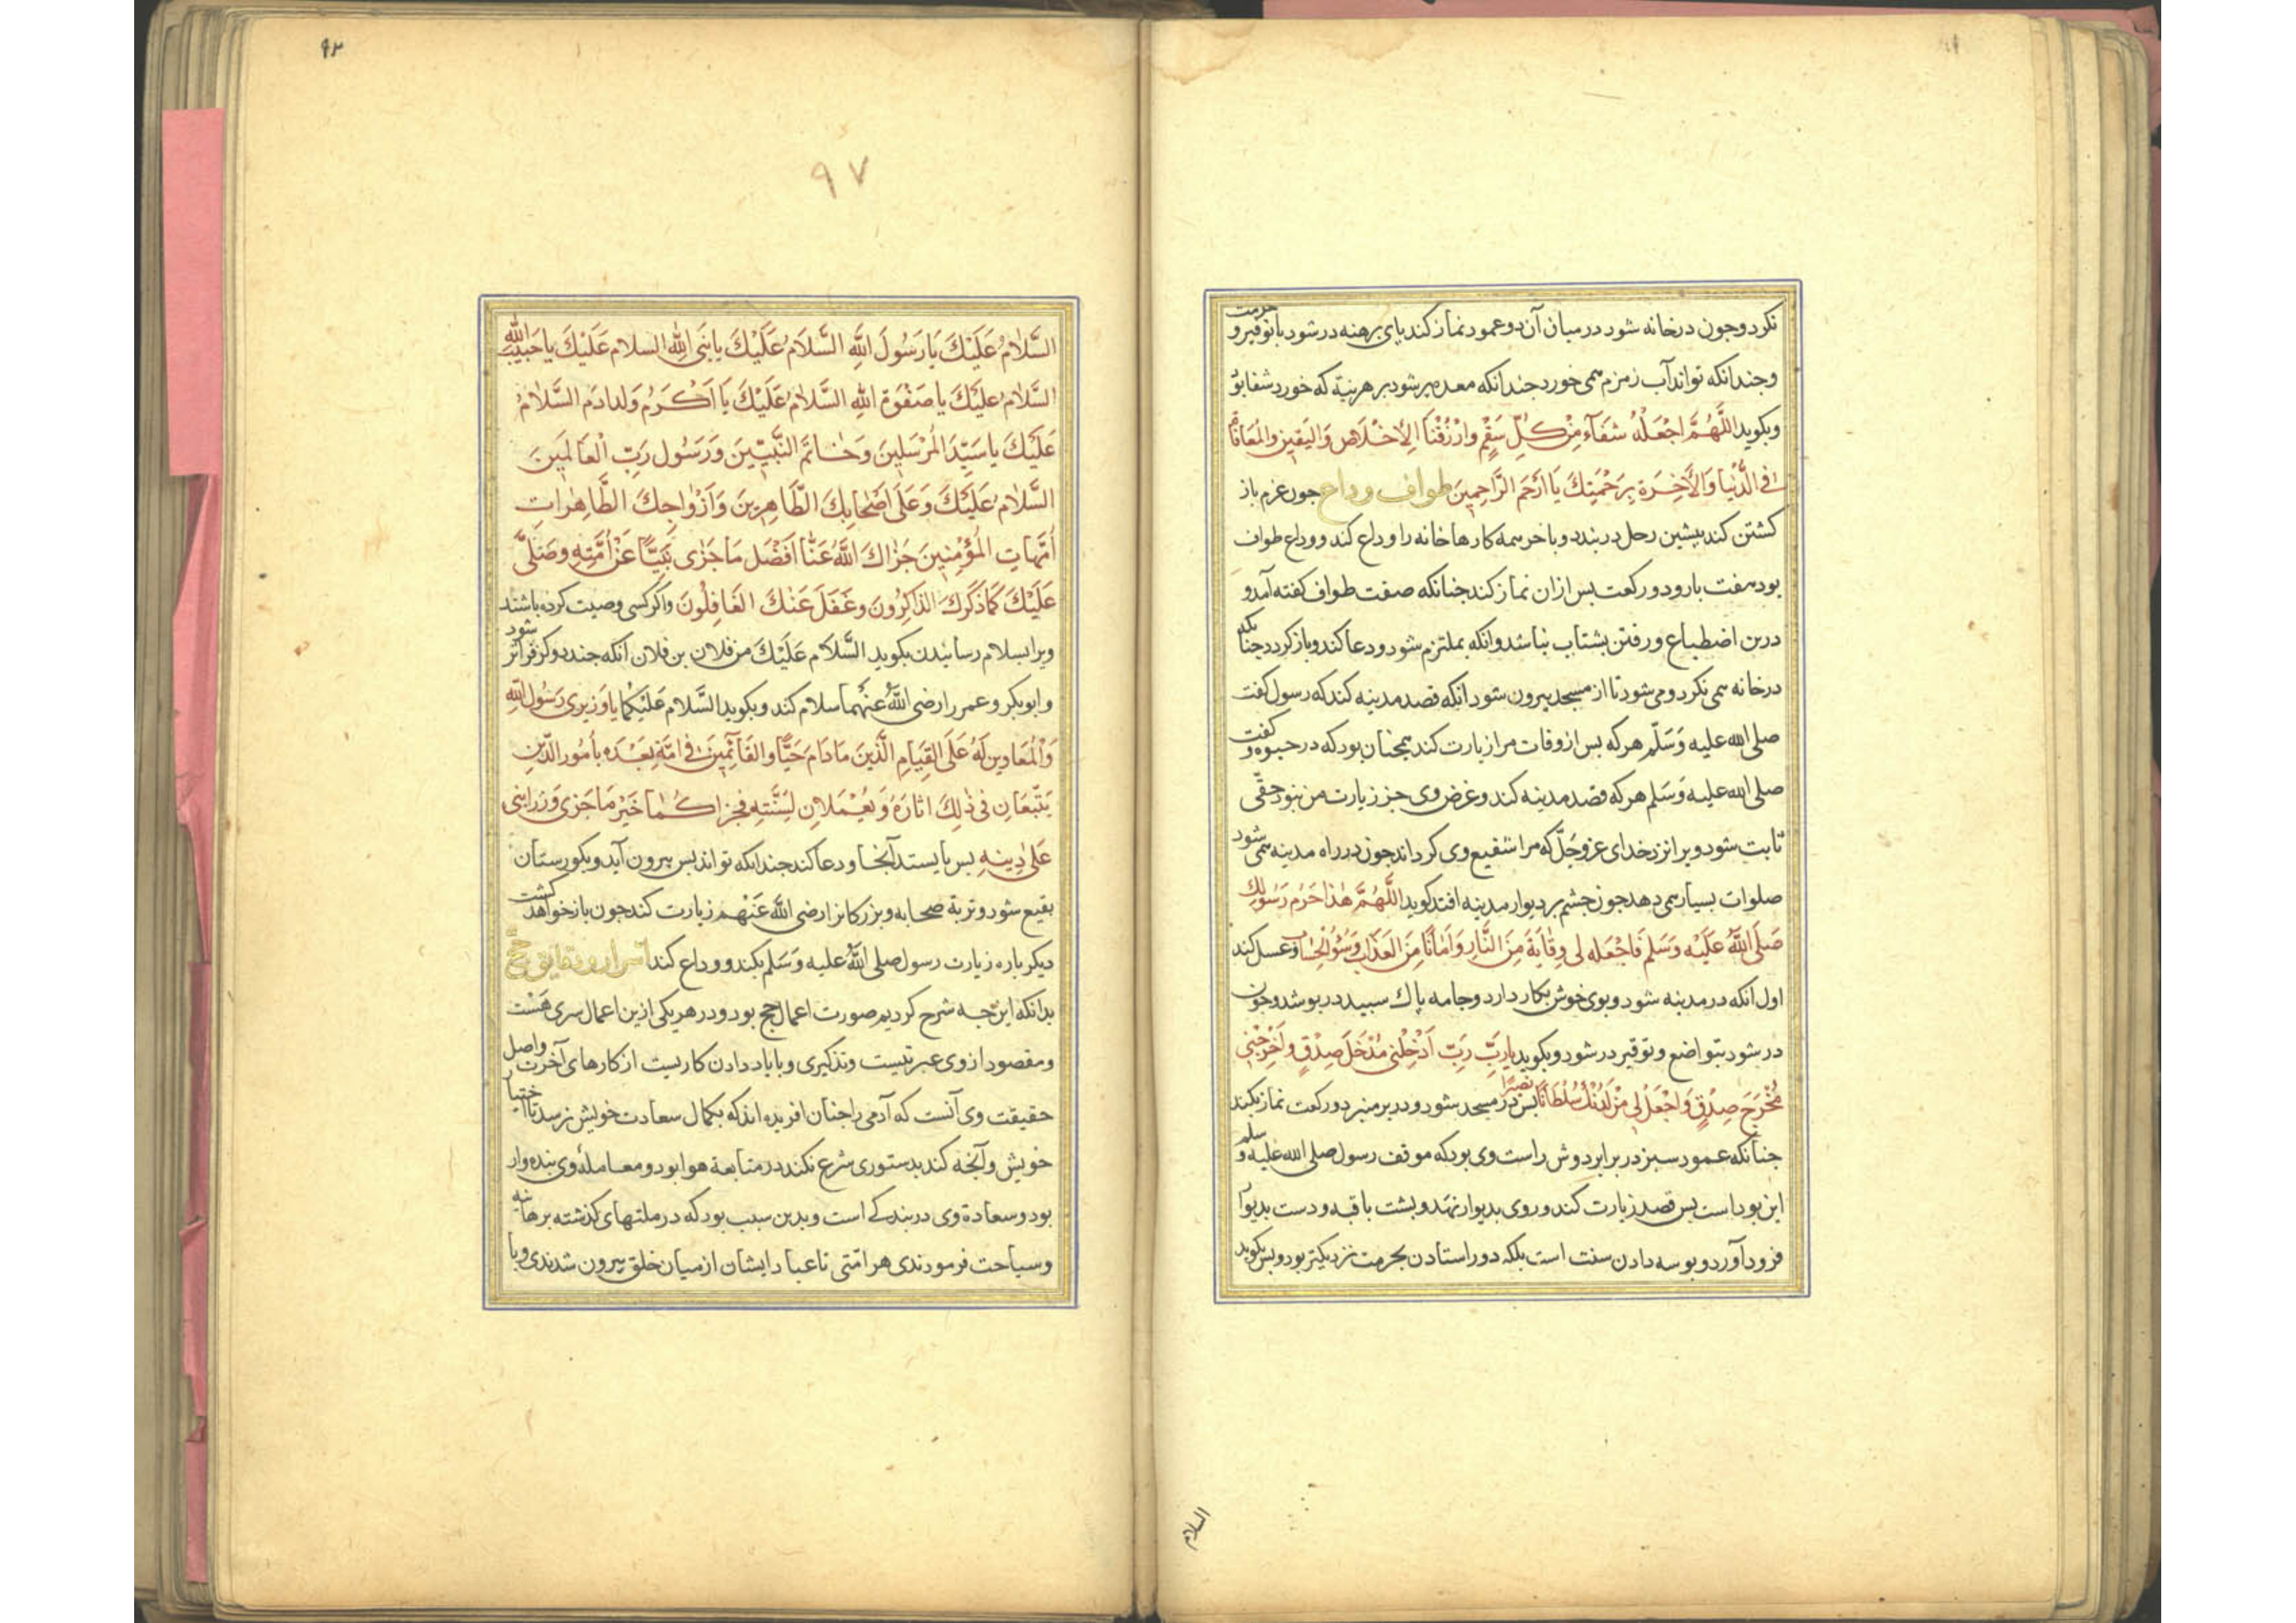 نکرد و جون در خانه شود در میان آن دو عمود نماز کند پای برهنه در شود با توقیر و حرمت
و جندانکه تواند آب زمزم همی خورد جندانکه معده پر شود بر هر نیتة که خورد شفا بوَد
و بکوید اللَّهُمَّ اجْعَلْهُ شفَآءً مِنْ کُلِّ سَقَمٍ وارْزُقْنَا الاِخْلَاصَ وَالیَقِینَ والمُعَافَاة
فی الدُّنْیَا وَالأَخِرَة بِرَحْمَتِكَ یَا اَرْحَمَ الرَّاحِمِینَ طواف وداع جون عزم باز
کشتن کند بیشین رحل در بندد و باخر همه کارها خانه را وداع کند و وداع طواف
بود هفت بار و دو رکعت بس ازان نماز کند جنانکه صفت طواف کفته آمد و
درین اضطباع و رفتن بشتاب نباشد وانکه بملتزم شود و دعا کند و باز کردد جنانکه
در خانه همی نکرد و می شود تا از مسجد بیرون شود انکه قصد مدینه کند که رسول کفت
صلی الله علیه وَسَلّم هر که بس از وفات مرا زیارت کند همجنان بود که در حیوة و کفت
صلی الله علیه وَسَلم هر که قصد مدینه کند و غرض وی جز زیارت من نبود حقّی
ثابت شود ویرا نزد خدای عزوجَلّ که مرا شفیع وی کرداند جون در راه مدینه همی شود
صلوات بسیار همی دهد جون جشم بر دیوار مدینه افتد کوید اللَّهُمَّ هٰذا حَرَمُ رَسُولِكَ
صَلَّی اللَّهُ عَلَیْه وَسَلَم فَاجْعَله لی وِقَایَةً مِنَ النَّارِ وَاَمَانًا مِنَ العَذَابِ وَسُوءِ الحِسَاب و غسل کند
اول انکه در مدینه شود و بوی خوش بکار دارد و جامه پاك سبید در بوشد و جون
در شود بتواضع و توقیر در شود و بکوید یا رَبِّ رَبِّ اَدْخِلْنی مُدْخَلَ صِدْقٍ وَاَخْرِجْنِی
مُخْرَجَ صِدْقٍ وَاجْعَلْ لی مِنْ لَدُنْكَ سُلْطَانًا نَصِیرًا بس در مسجد شود و در بر منبر دو رکعت نماز بکند
جنانکه عمود سبز در برابر دوش راست وی بود که موقف رسول صلی الله علیه و سلم
این بوداست بس قصد زیارت کند و روی بدیوار نهد و بشت با قبه و دست بدیوار
فرود آوردو بوسه دادن سنت است بلکه دور استادن بحرمت نزدیکتر بود و بس بکوید
السلام
۹۲
۹۷
السَّلَامُ عَلَیْكَ یَا رَسُولَ اللَّهِ السَّلَامُ عَلَیْكَ یا نَبیَّ اللهِ السلام عَلَیْكَ یا حَبِیبَ اللهِ
السَّلامُ عَلَیْكَ یا صَفْوَة اللهِ السَّلامُ عَلَیْكَ یَا اَکْرَمُ وَلدِ ادَم السَّلامُ
عَلَیْكَ یا سَیِّدَ المُرْسَلِینَ وَخَاتَمَ النَّبِیِّینَ وَرَسُول رَبِّ الْعَالَمِینَ
السَّلامُ عَلَیْكَ وَعَلَی اَصْحَابِكَ الطَّاهِرِینَ وَاَزْوَاجِكَ الطَّاهِرَاتِ
اُمَّهَاتِ المُؤْمِنِینَ جَزَاكَ اللَّهُ عَنَّا اَفْضَل مَا جَزٰی نَبِیًّا عَنْ اُمَّتِهِ وصَلَّی
عَلَیْكَ کَمَا ذَکَرَكَ الذَاکِرُونَ وغَفَلَ عَنْكَ الغَافِلُونَ واکر کسی وصیت کرده باشد
ویرا بسلام رسانیدن بکوید السَّلام عَلَیْكَ من فلان بن فلان انکه جند دو کز فراتر شود
و ابوبکر و عمر را رضی اللَّهُ عَنْهُما سلام کند و بکوید السَّلام عَلَیْکُمَا یا وَزِیری رَسُول اللَّهِ
وَالمُعَاوِنِین لَهُ عَلَی القِیَامِ الَّذین مَادَامَ حَیًّا والقَائِمِینَ فی امَّتِهِ بَعْدَه بأمُور الدِّین
یَتَّبِعَانِ فی ذٰلِكَ اثَارَهُ وَیَعْمَلَانِ لِسُنَّتِهِ فجزاکُما خَیْرَ مَا جَزی وَزرا نبی
عَلی دِینِهِ بس بایستد آنجا و دعا کند جندانکه تواند بس بیرون آید و بکورستان
بقیع شود و تربة صحابه و بزرکانرا رضی اللَّه عَنْهُم زیارت کند جون باز خواهد کشت
دیکر باره زیارت رسول صلی اللَّهُ علیه وَسَلم بکند و وداع کند اسرار و دقایق حجّ
بدانکه این جه شرح کردیم صورت اعمال حج بود و در هر یکی ازین اعمال سری هَسْت
و مقصود از وی عبرتیست و تذکیری و با یاد دادن کاریست از کارهای آخرت واصل
حقیقت وی آنست که آدمی را جنان افریده اند که بکمال سعادت خویش نرسد تا اختیار
خویش وآنجه کند بدستوری شرع نکند در متابعة هوا بود و معاملهٔ وی بنده وار
بود و سعادة وی در بندکی است و بدین سبب بود که در ملتهای کذشته برهبانیه
و سیاحت فرمودندی هر امّتی تا عباد ایشان از میان خلق بیرون شدندی و با